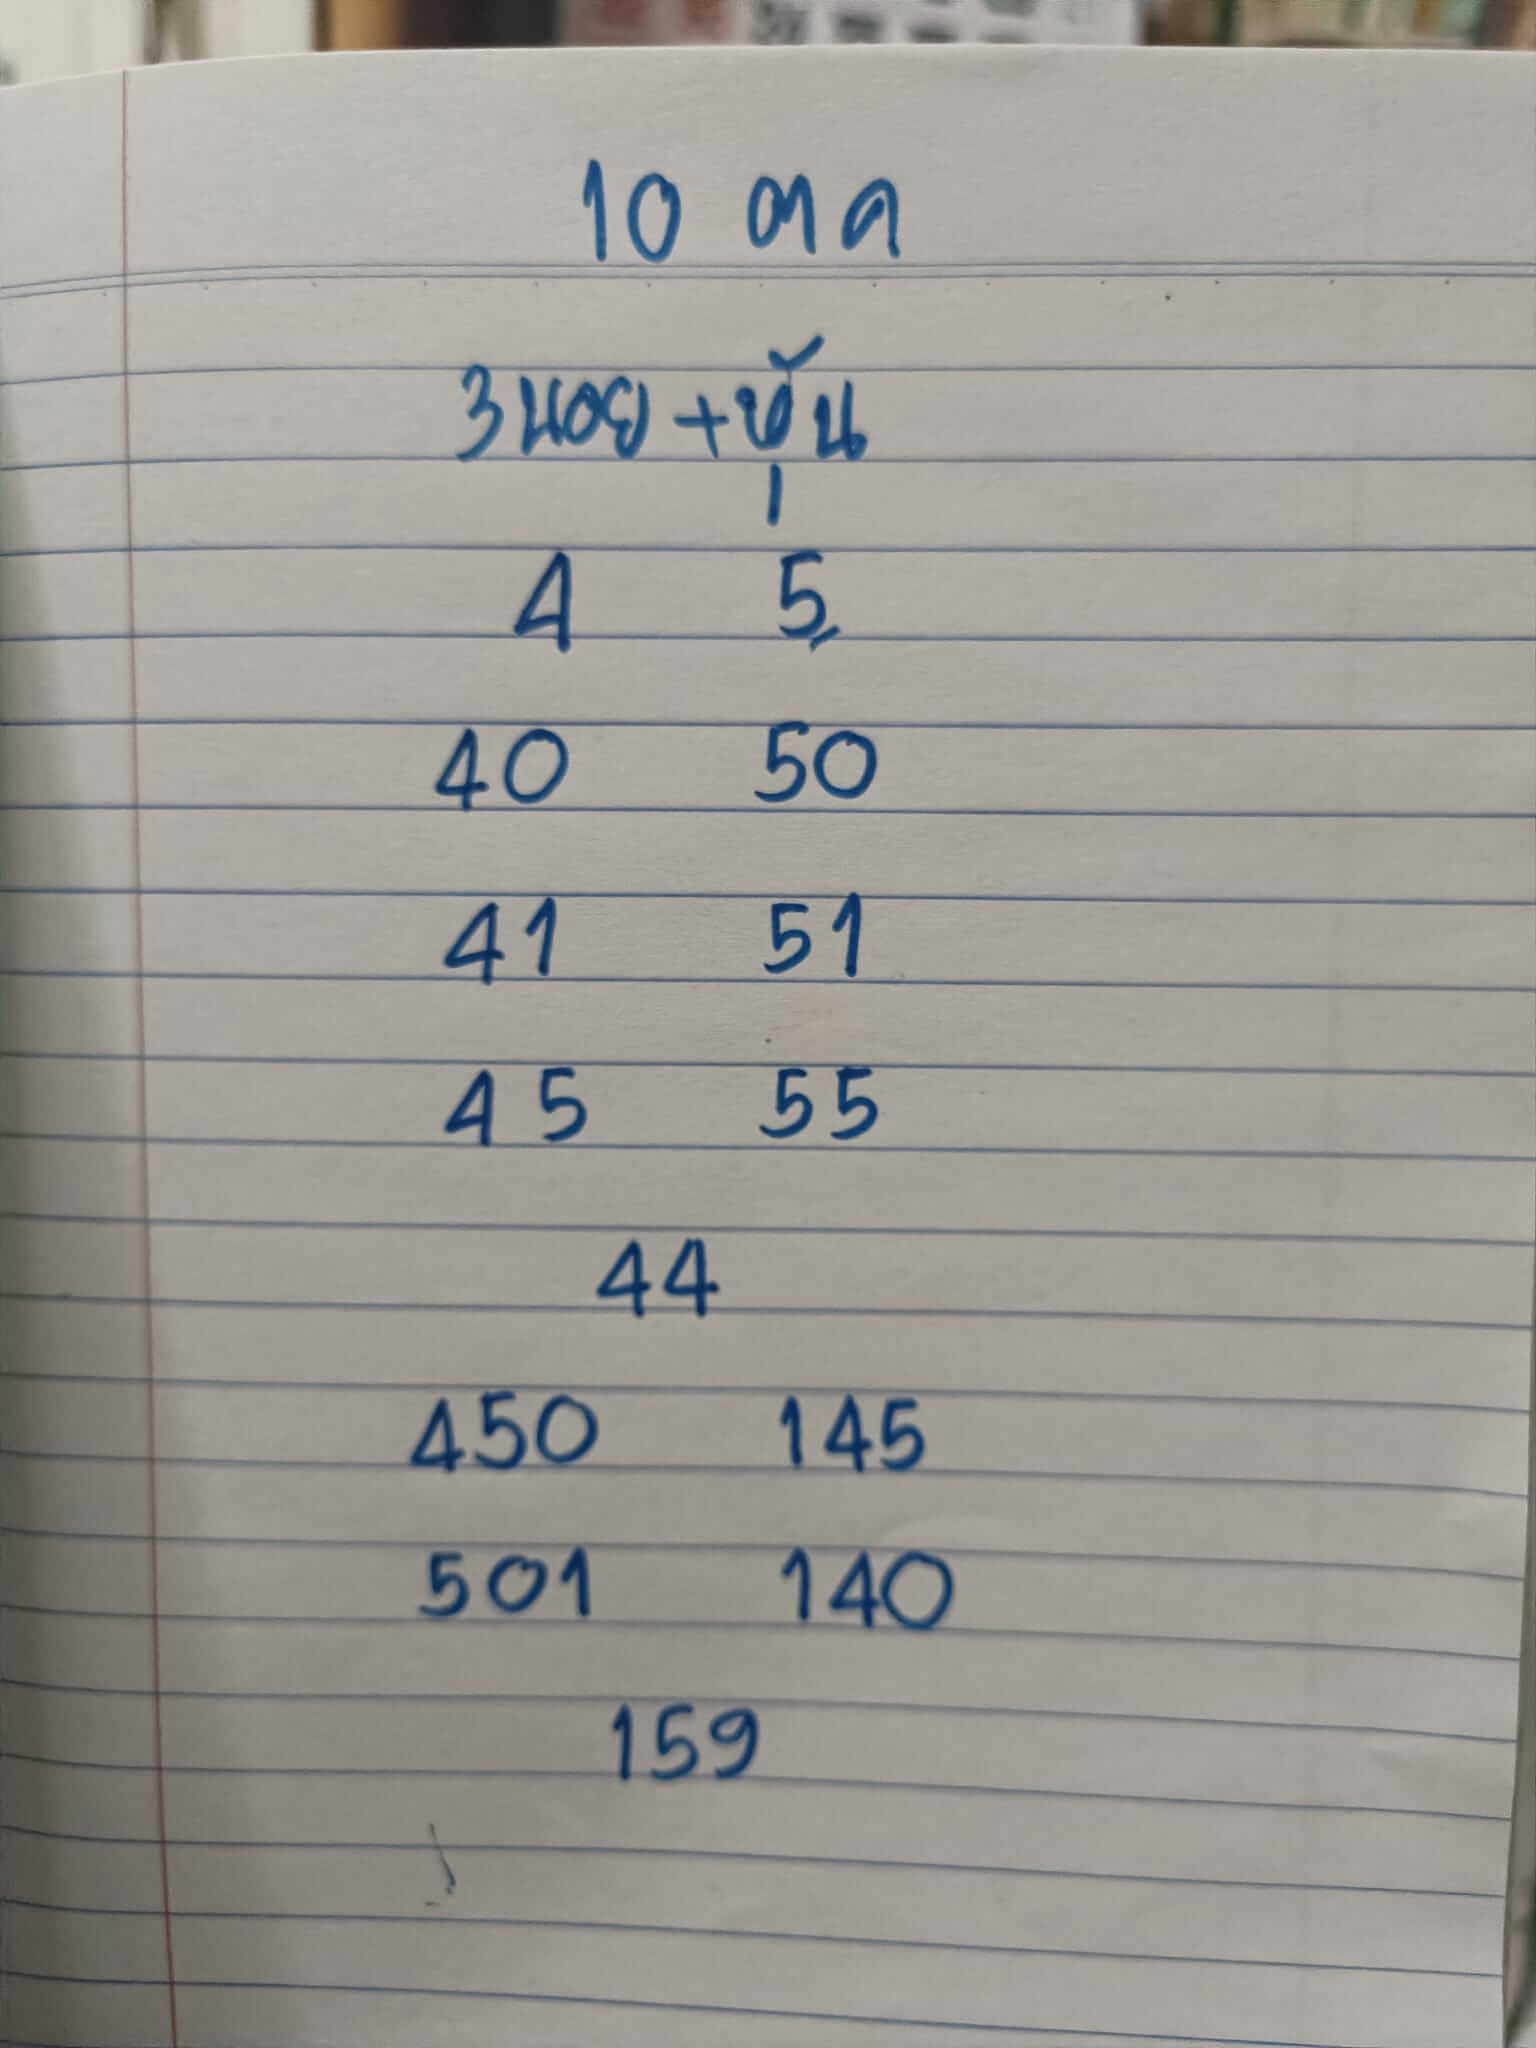 10 ตค
3นอย +หุ้น
4 5
40 50
41 51
45 55
44
450 145
501 140
159